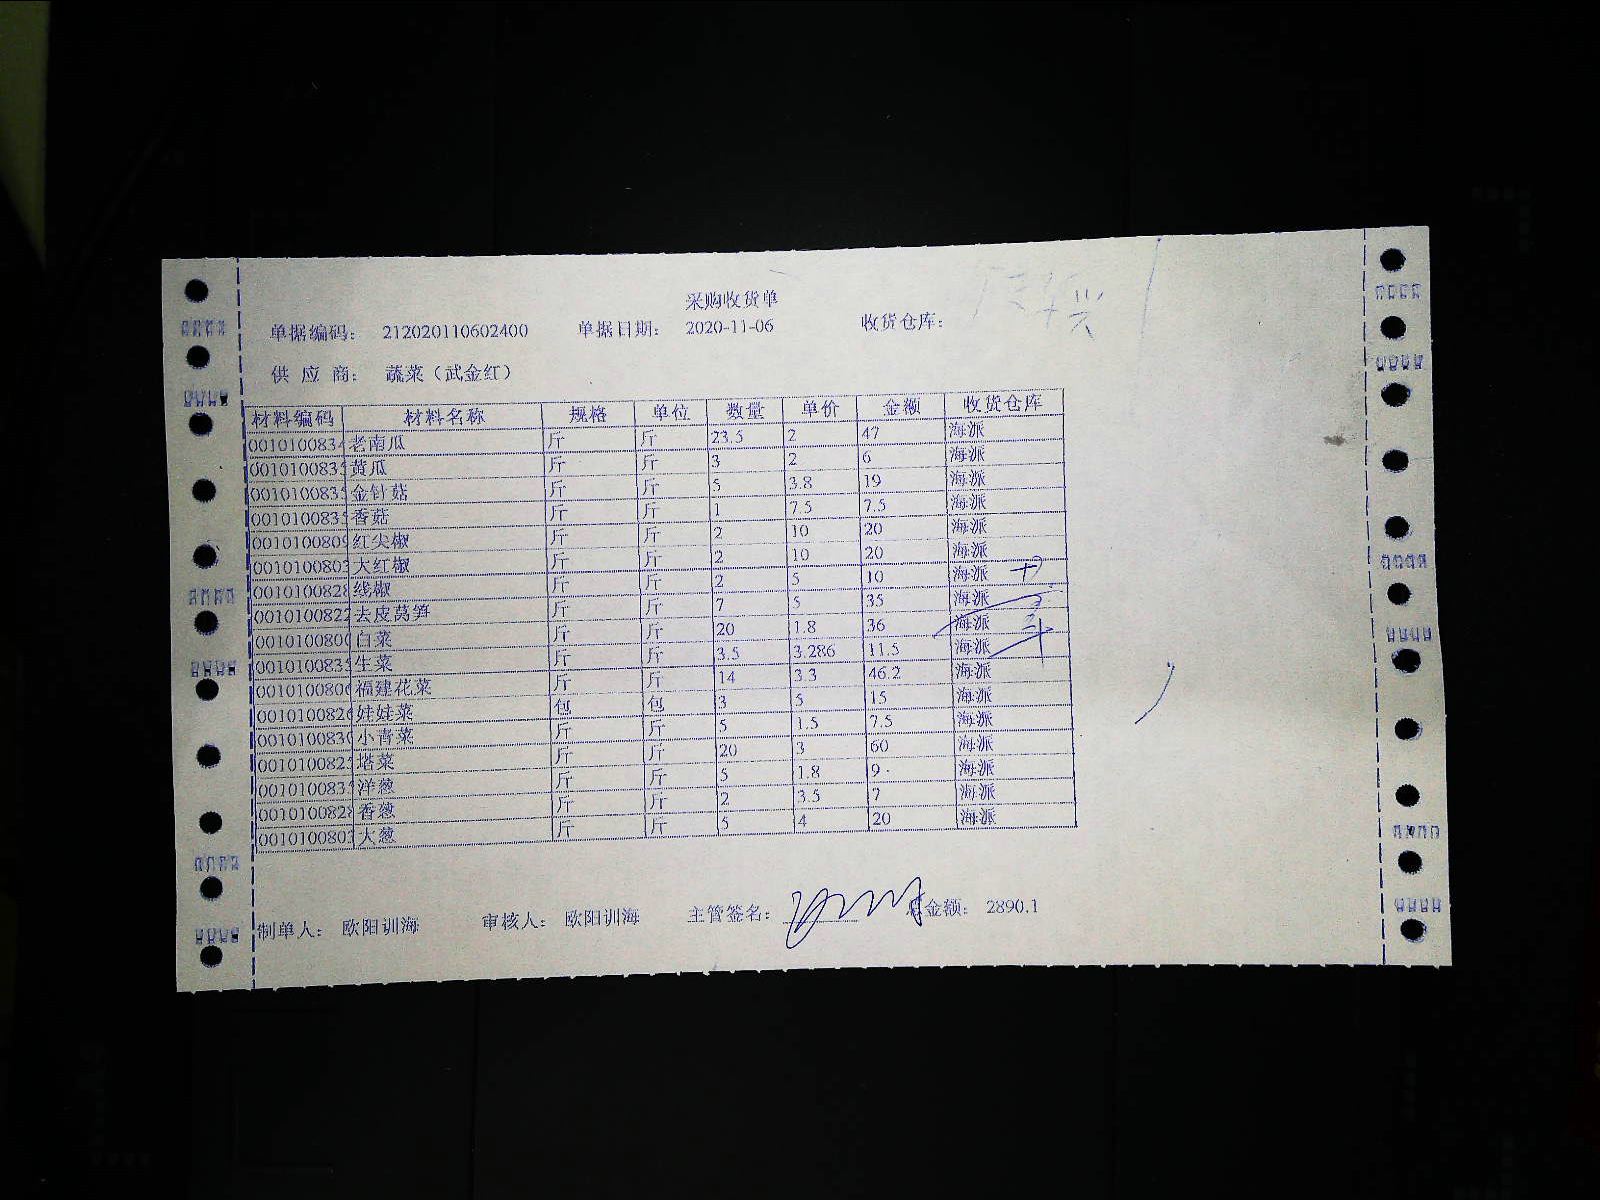 采购收货单
单据编码: 212020110602400 单据日期: 2020-11-06 收货仓库:
供 应 商: 蔬菜（武金红）
材料编码 材料名称 规格 单位 数量 单价 金额 收货仓库
0010100834 老南瓜 斤 斤 23.5 2 47 海派
001010083 黄瓜 斤 斤 3 2 6 海派
001010083 金针菇 斤 斤 5 3.8 19 海派
001010083 香菇 斤 斤 1 7.5 7.5 海派
001010080 红尖椒 斤 斤 2 10 20 海派
001010080 大红椒 斤 斤 2 10 20 海派
001010082 线椒 斤 斤 2 5 10 海派
001010082 去皮莴笋 斤 斤 7 5 35 海派
001010080 白菜 斤 斤 20 1.8 36 海派
001010083 生菜 斤 斤 3.5 3.286 11.5 海派
001010080 福建花菜 斤 斤 14 3.3 46.2 海派
001010082 娃娃菜 包 包 3 5 15 海派
001010083 小青菜 斤 斤 5 1.5 7.5 海派
001010082 塔菜 斤 斤 20 3 60 海派
001010083 洋葱 斤 斤 5 1.8 9 海派
001010082 香葱 斤 斤 2 3.5 7 海派
001010080 大葱 斤 斤 5 4 20 海派
制单人: 欧阳训海 审核人: 欧阳训海 主管签名: 总金额: 2890.1